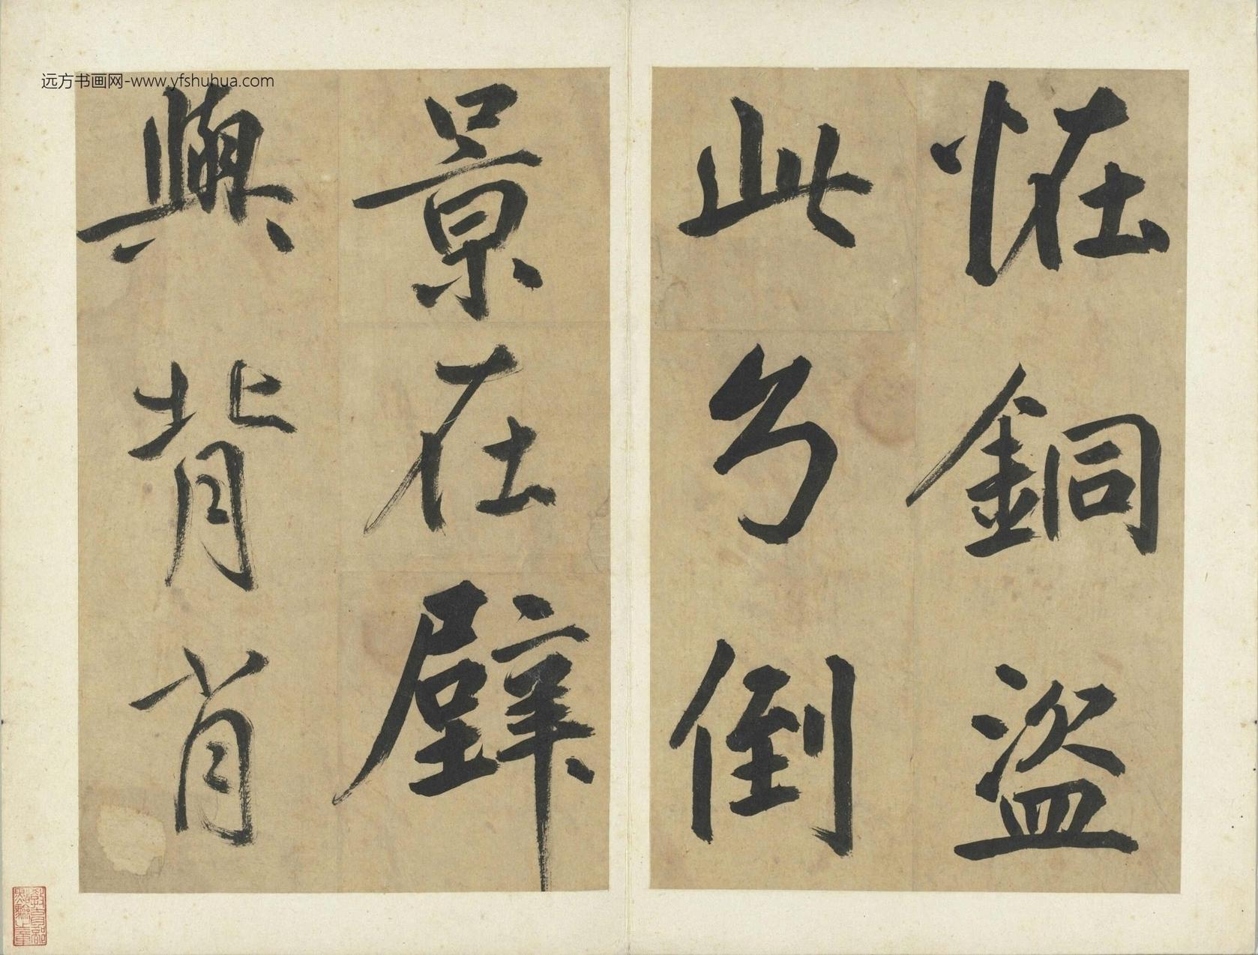 恠銅盜
此倒
景在壁
與背肖
远方书画网-www.yfshuhua.com